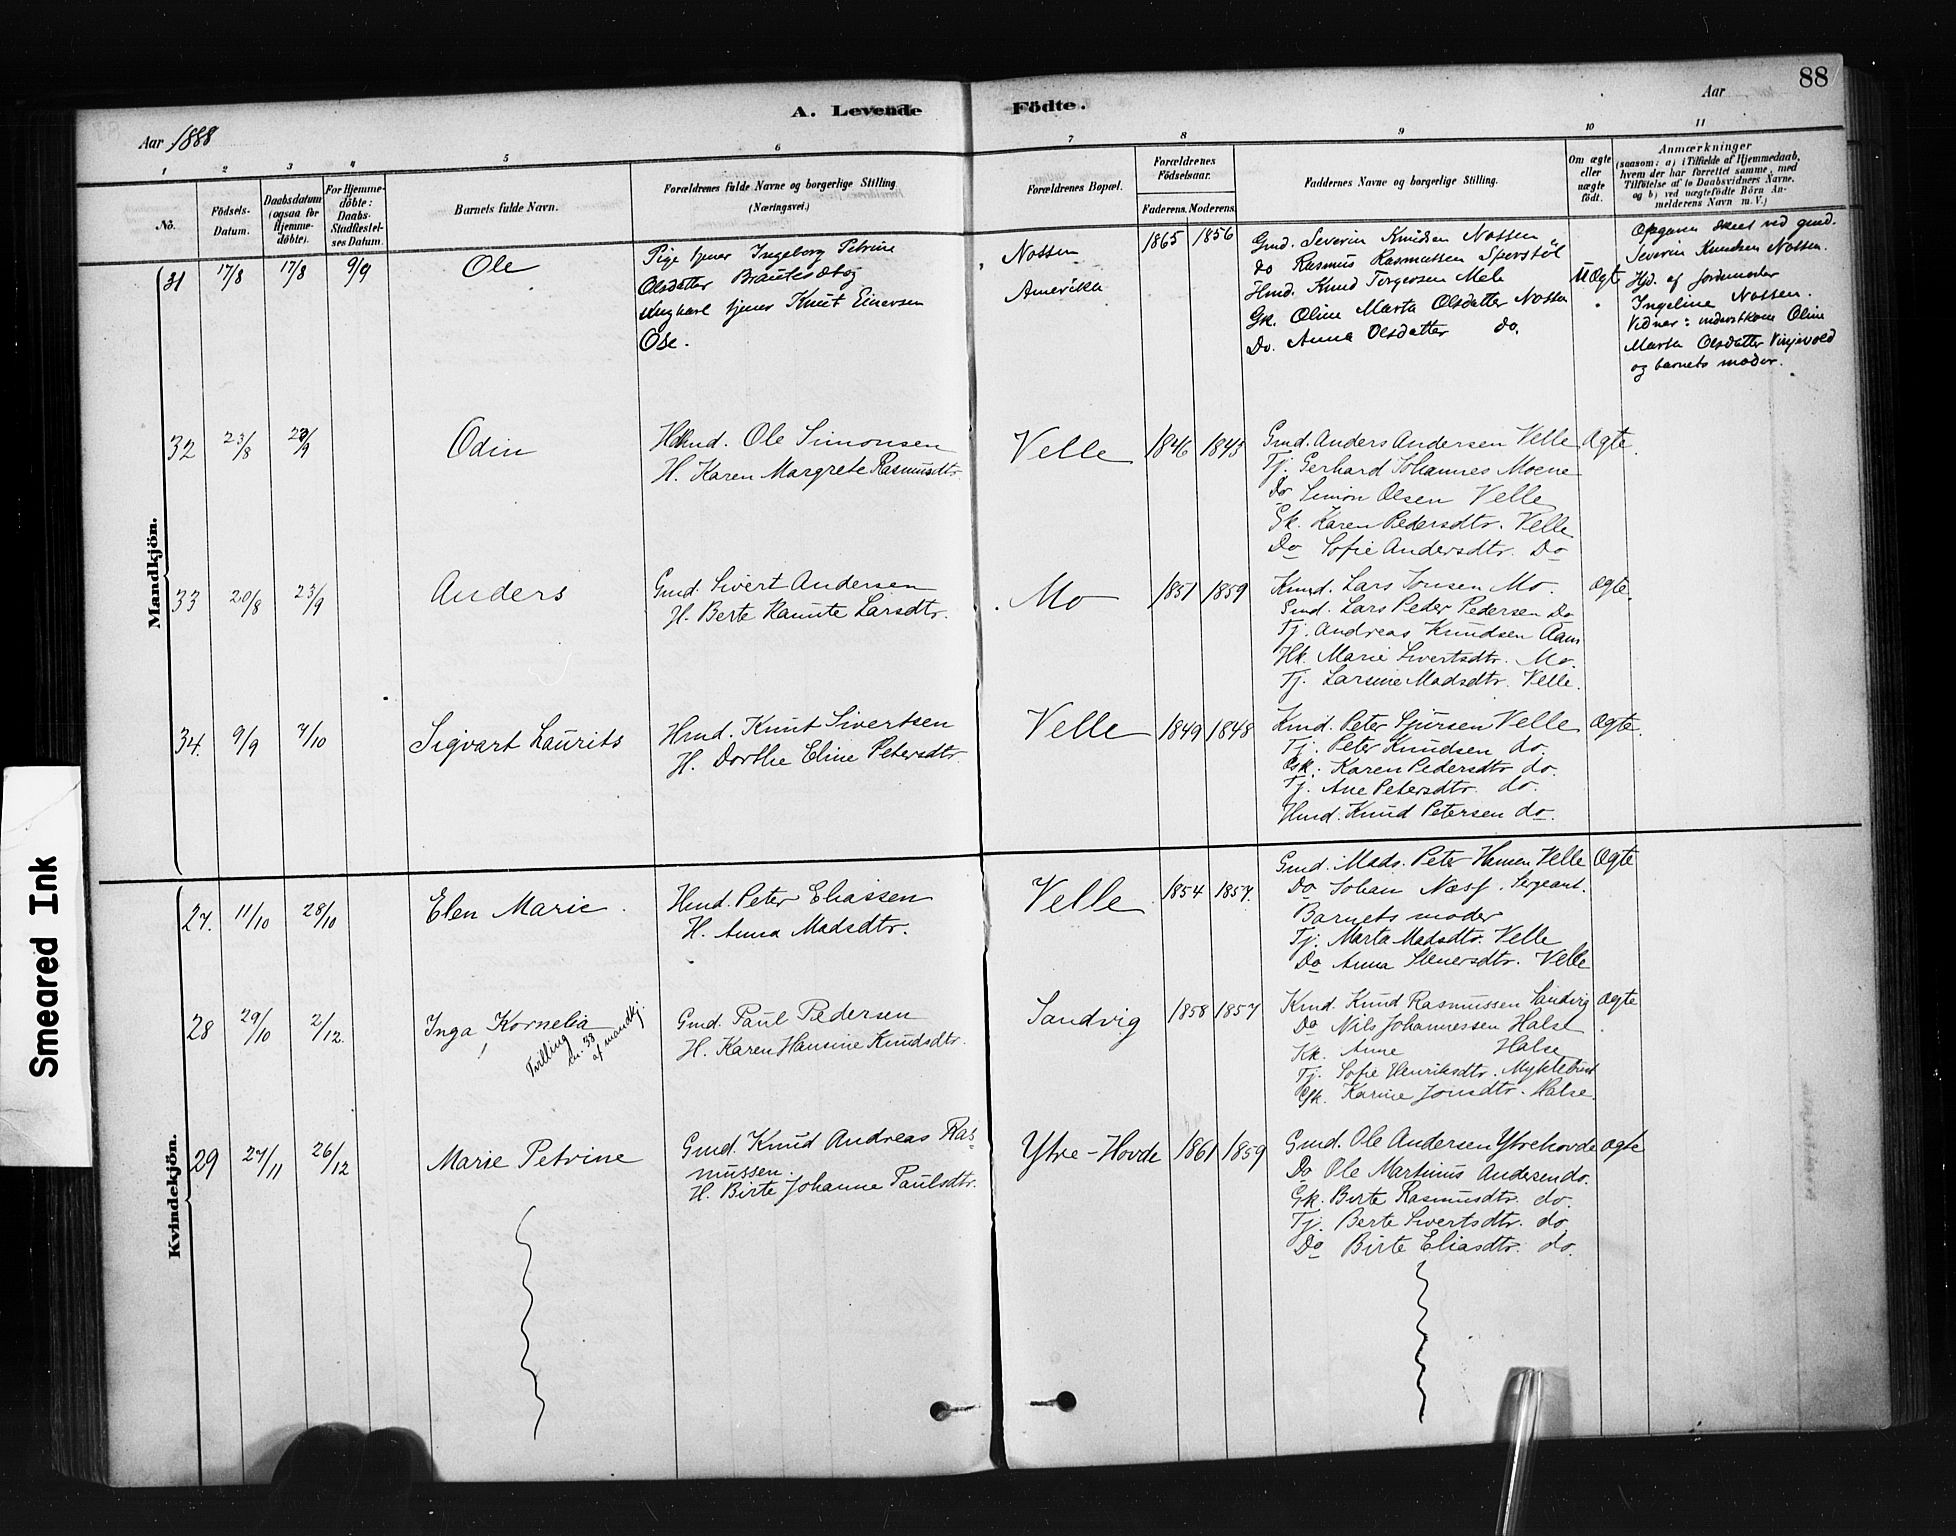 88
A. Levende Födte.
Aar 1888
Aar
1
2
3
4
5
6
7
8
9
10
11
No.
Födsels-Datum.
Daabsdatum (ogsaa for Hjemmedöbte).
For Hjemmedöbte: Daabs-Stadfæstelses Datum.
Barnets fulde Navn.
Forældrenes fulde Navne og borgerlige Stilling (Næringsvei.)
Forældrenes Bopæl.
Forældrenes Födselsaar.
Faderens. Moderens.
Faddernes Navne og borgerlige Stilling.
Om ægte eller uægte födt.
Anmærkninger
(saasom: a) i Tilfælde af Hjemmedaab, hvem der har forrettet samme, med Tilföielse af to Daabsvidners Navne, og b) ved uægtefödte Börn Anmelderens Navn m. V.)
Mandkjön.
31 17/8 17/8 9/9 Ole
Pige tjener Ingeborg Petrine
Olsdatter
Ungkarl tjener Knut Einersen
Ose.
Nossen
Amerika
1865 1856
Gmd. Severin Knudsen Nossen
do Rasmus Rasmussen Sperstöl
Hmd. Knud Torgersen Mele
Gk. Oline Marta Olsdatter Nossen
Do. Anna Olsdatter do.
Uægte
Opgaven skeet ved gmd.
Severin Knudsen Nossen.
Hjd. af Jordmoder
Ingeline Nossen.
Vidner: Oline
Marta Olsdatter
og barnets moder.
32 23/8 Odin
Hmd. Ole Simonsen
H. Karen Margrete Rasmusdtr.
Velle 1846 1845
Gmd. Anders Andersen Velle
Tj. Gerhard Johannes Moene
Do Simon Olsen Velle
Gk. Karen Pedersdtr. Velle
Do Sofie Andersdtr. Do
Ægte.
33 20/8 23/9 Anders
Gmd. Sivert Andersen
H. Berte Larsdtr.
Mo 1851 1859
Kmd. Lars Mo.
Gmd. Lars Peder Pedersen Do
Tj. Andreas Knudsen Aam
Hk. Marie Sivertsdtr. Mo.
Tj. Larsine Madsdtr. Velle.
Ægte.
34. 9/9 7/10 Sigvart Laurits
Hmd. Knut Sivertsen
H. Dorthe Eline Petersdtr.
Velle 1849 1848
Kmd. Peter Sjursen Velle
Tj. Peter Knudsen do.
Gk. Karen Pedersdtr do.
Tj. Ane Petersdtr. do.
Hmd. Knud Petersen do.
Ægte.
Kvindekjön.
27. 11/10 28/10 Elen Marie.
Hmd. Peter Eliassen
H. Anna Madsdtr.
Velle 1854 1857.
Gmd. Mads. Peter Hansen Velle
Do Johan Næss. Sergeant.
Barnets moder
Tj. Marta Madsdtr. Velle
Do Anna Velle
Ægte
28 29/10 2/12. Inga Kornelia
Tvilling
m. 33
af mandkj.
Gmd. Paul Pedersen
H. Karen Hansine Knudsdtr.
Sandvig 1858 1857
Kmd. Knud Rasmussen Sandvig
Do Nils Johannessen Halse
Kk. Anne Halse
Tj. Sofie Henriksdtr. Myklebust
Gk. Karine Jonsdtr. Halse.
Ægte
29 27/11 26/12 Marie Petrine
Gmd. Knud Andreas Ras-
mussen.
H. Birte Johanne Paulsdtr.
Ytre-Hovde 1861 1859
Gmd. Ole Andersen Ytrehovde
Do Ole Martinus Andersen do.
Gk. Berte Rasmusdtr. do.
Tj. Berte Sivertsdtr. do
Do Birte Eliasdtr. do.
Ægte
Smeared Ink